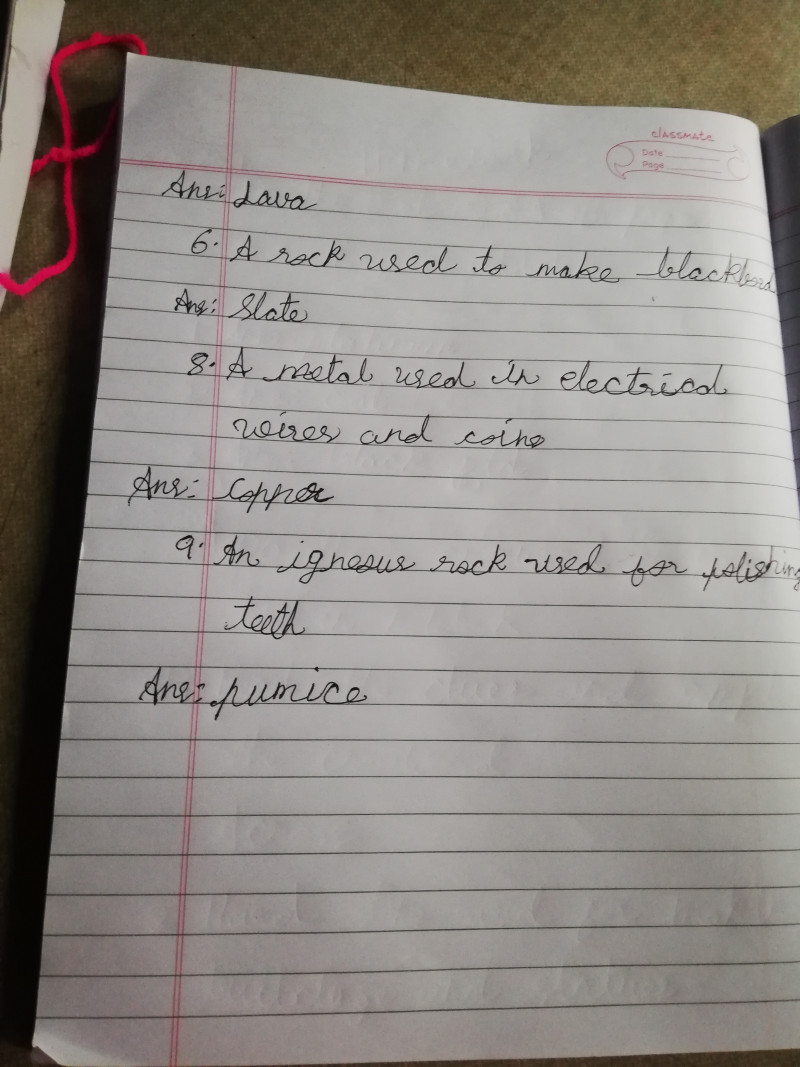 classmate
Date
Page
Ans: Lava
6. A rock used to make blackbord
Ans: Slate
8. A metal used in electrical
wires and coins
Ans: Copper
9. An igneous rock used for polishing
teeth
Ans: pumice